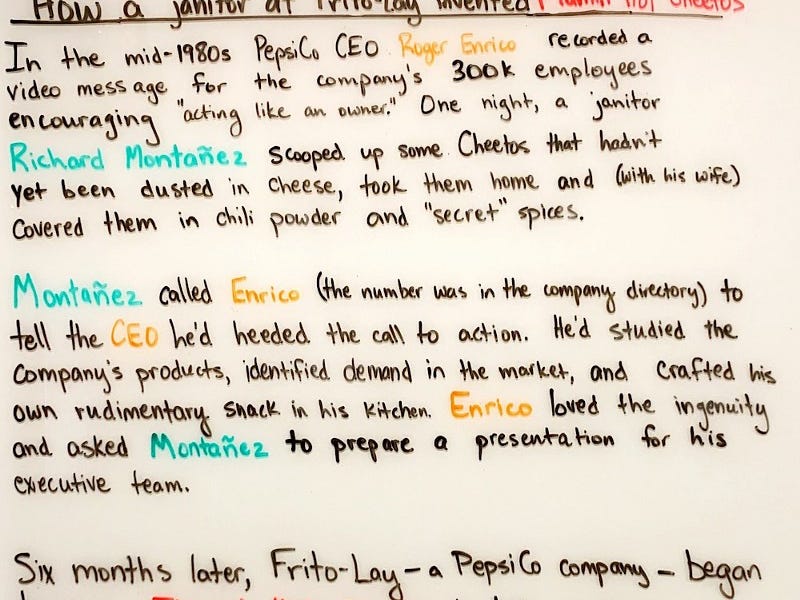 How a janitor at Frito-Lay invented Flamin' Hot Cheetos
In the mid-1980s PepsiCo CEO Roger Enrico recorded a
video message for the company's 300k employees
encouraging "acting like an owner." One night, a janitor
Richard Montañez scooped up some Cheetos that hadn't
yet been dusted in cheese, took them home and (with his wife)
covered them in chili powder and "secret" spices.
Montañez called Enrico (the number was in the company directory) to
tell the CEO he'd heeded the call to action. He'd studied the
company's products, identified demand in the market, and crafted his
own rudimentary snack in his kitchen. Enrico loved the ingenuity
and asked Montañez to prepare a presentation for his
executive team.
Six months later, Frito-Lay – a PepsiCo company – began